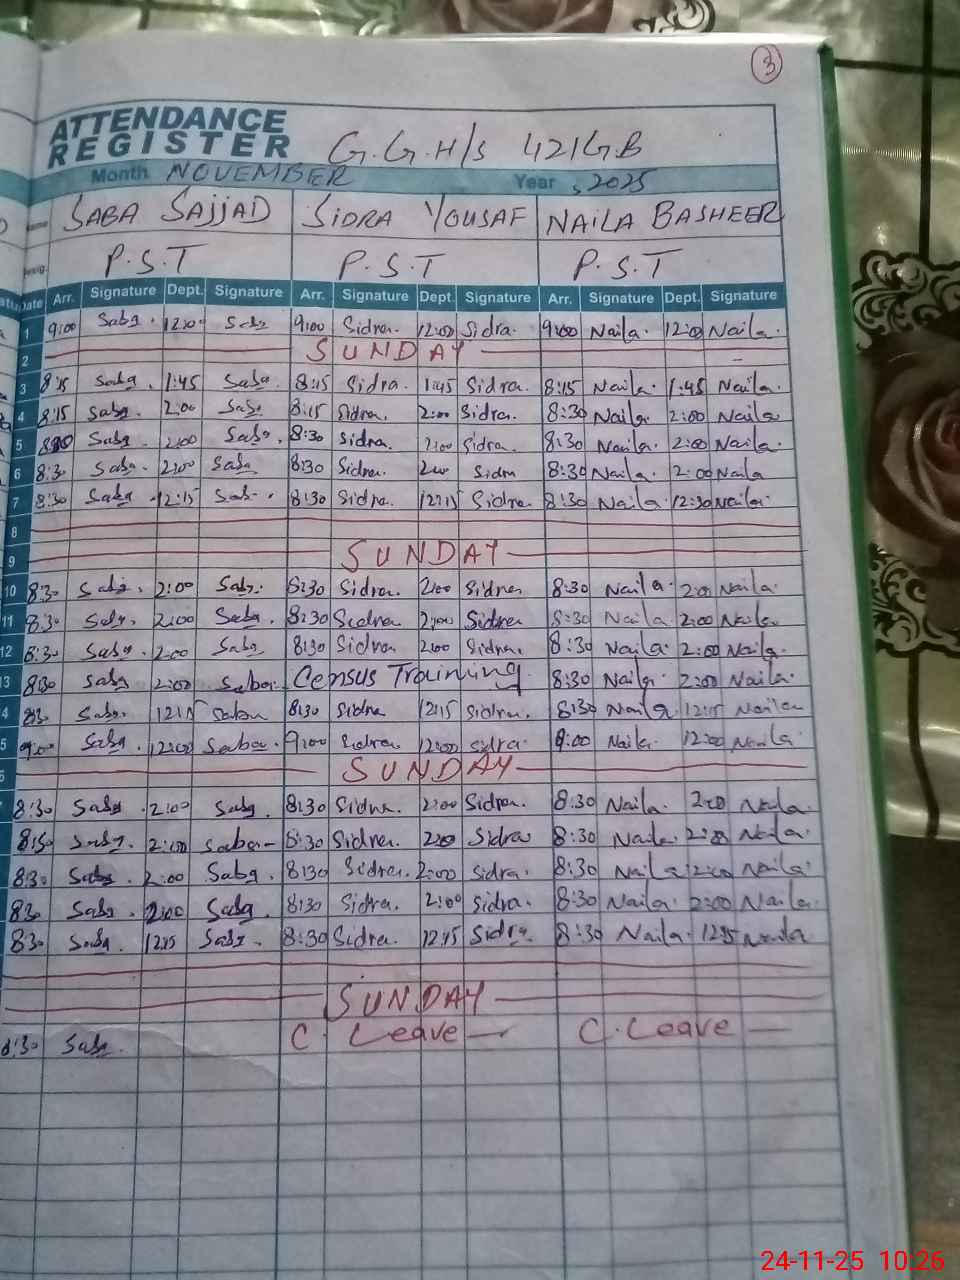 3
ATTENDANCE
REGISTER G.G.H/S 421GB
Month NOVEMBER Year , 2025
SABA SAJJAD SIDRA YOUSAF NAILA BASHEER
P.S.T P.S.T P.S.T
Date Arr. Signature Dept. Signature Arr. Signature Dept. Signature Arr. Signature Dept. Signature
1 9:00 Saba . 12:00 Saba 9:00 Sidra. 12:00 Sidra. 9:00 Naila. 12:00 Naila.
2 SUNDAY
3 8:15 Saba . 1:45 Saba. 8:15 Sidra. 1:45 Sidra. 8:15 Naila. 1:45 Naila.
4 8:15 Saba. 2:00 Saba 8:15 Sidra. 2:00 Sidra. 8:30 Naila. 2:00 Naila
5 Saba. 2:00 Saba. 8:30 Sidra. 2:00 Sidra. 8:30 Naila. 2:00 Naila.
6 8:30 Saba. 2:00 Saba 8:30 Sidra. 2:00 Sidra 8:30 Naila. 2:00 Naila
7 8:30 Saba . 12:15 Sab-. 8:30 Sidra. 12:15 Sidra. 8:30 Naila. 12:30 Naila.
8
9 SUNDAY
10 8:30 Saba. 2:00 Saba. 8:30 Sidra. 2:00 Sidra 8:30 Naila. 2:00 Naila.
11 8:30 Saba. 2:00 Saba. 8:30 Sidra 2:00 Sidra 8:30 Naila. 2:00 Naila.
12 8:30 Saba. 2:00 Saba 8:30 Sidra 2:00 Sidra. 8:30 Naila. 2:00 Naila.
13 8:30 Saba 2:00 Saba. Census Training 8:30 Naila. 2:00 Naila.
4 8:30 Saba. 12:15 Saba 8:30 Sidra 12:15 Sidra. 8:30 Naila. 12:15 Naila
5 9:00 Saba. 12:00 Saba. 9:00 Sidra. 12:00 Sidra. 9:00 Naila. 12:00 Naila.
6 SUNDAY
8:30 Saba . 2:00 Saba. 8:30 Sidra. 2:00 Sidra. 8:30 Naila. 2:00 Naila.
8:30 Saba. 2:00 Saba- 8:30 Sidra. 2:00 Sidra 8:30 Naila. 2:00 Naila.
8:30 Saba. 2:00 Saba. 8:30 Sidra. 2:00 Sidra. 8:30 Naila 2:00 Naila.
8:30 Saba. 2:00 Saba. 8:30 Sidra. 2:00 Sidra. 8:30 Naila. 2:00 Naila.
8:30 Saba. 12:15 Saba . 8:30 Sidra. 12:15 Sidra. 8:30 Naila. 12:15 Naila
SUNDAY
8:30 Saba. C. Leave — C. Leave —
24-11-25 10:26